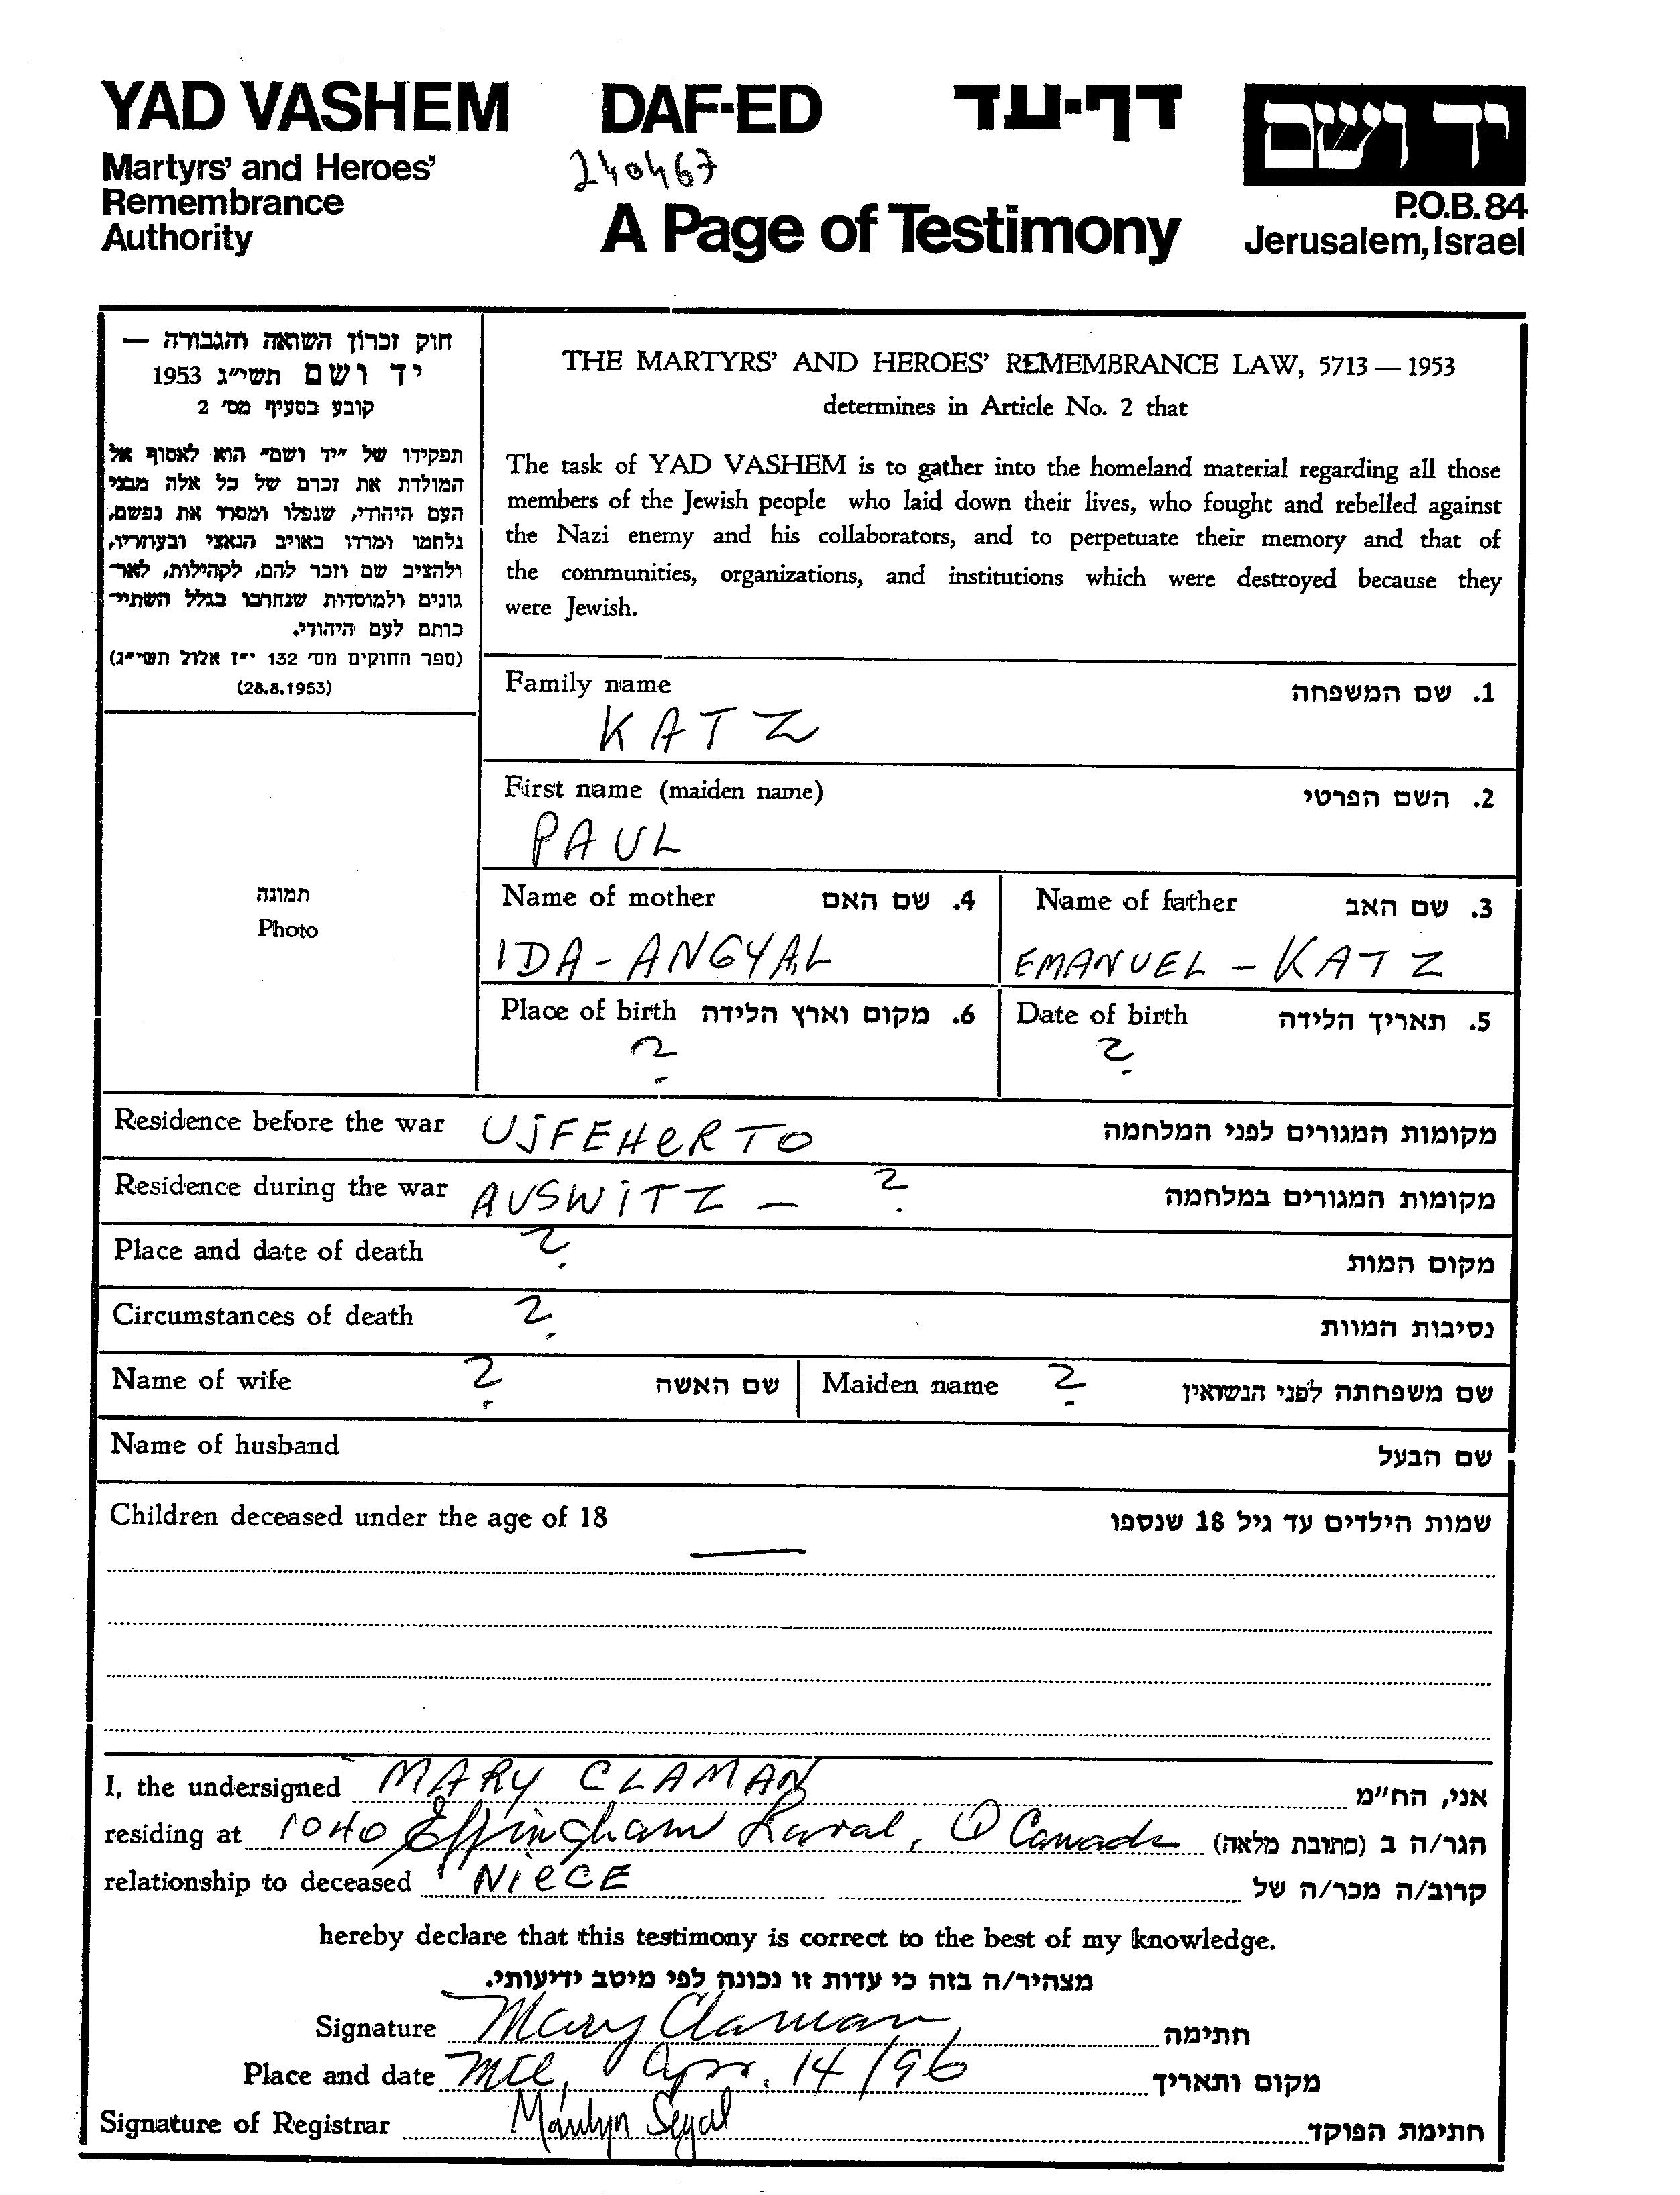 YAD VASHEM DAF-ED דף-עד יד ושם
Martyrs' and Heroes'
Remembrance
Authority
240467
A Page of Testimony
P.O.B. 84
Jerusalem, Israel
חוק זכרון השואה והגבורה —
יד ושם תשי"ג 1953
קובע בסעיף מס' 2
תפקידו של "יד ושם" הוא לאסוף אל
המולדת את זכרם של כל אלה מבני
העם היהודי, שנפלו ומסרו את נפשם,
נלחמו ומרדו באויב הנאצי ובעוזריו,
ולהציב שם וזכר להם, לקהילות, לאר-
גונים ולמוסדות שנחרבו בגלל השתיי-
כותם לעם היהודי.
(ספר החוקים מס' 132 י"ז אלול תשי"ג)
(28.8.1953)
תמונה
Photo
THE MARTYRS' AND HEROES' REMEMBRANCE LAW, 5713 — 1953
determines in Article No. 2 that
The task of YAD VASHEM is to gather into the homeland material regarding all those
members of the Jewish people who laid down their lives, who fought and rebelled against
the Nazi enemy and his collaborators, and to perpetuate their memory and that of
the communities, organizations, and institutions which were destroyed because they
were Jewish.
Family name 1. שם המשפחה
KATZ
First name (maiden name) 2. השם הפרטי
PAUL
Name of mother 4. שם האם Name of father 3. שם האב
IDA - ANGYAL EMANUEL - KATZ
Place of birth 6. מקום וארץ הלידה Date of birth 5. תאריך הלידה
? ?
Residence before the war UjFEHeRTO מקומות המגורים לפני המלחמה
Residence during the war AUSWiTZ — ? מקומות המגורים במלחמה
Place and date of death ? מקום המות
Circumstances of death ? נסיבות המוות
Name of wife ? שם האשה Maiden name ? שם משפחתה לפני הנשואין
Name of husband שם הבעל
Children deceased under the age of 18 שמות הילדים עד גיל 18 שנספו
—
I, the undersigned MARY CLAMAN אני, הח"מ
residing at 1040 Effingham Laval, Q Canada הגר/ה ב (כתובת מלאה)
relationship to deceased NieCE קרוב/ה מכר/ה של
hereby declare that this testimony is correct to the best of my knowledge.
מצהיר/ה בזה כי עדות זו נכונה לפי מיטב ידיעותי.
Signature Mary Claman חתימה
Place and date Mtl, Apr. 14/96 מקום ותאריך
Signature of Registrar Marilyn Segal חתימת הפוקד